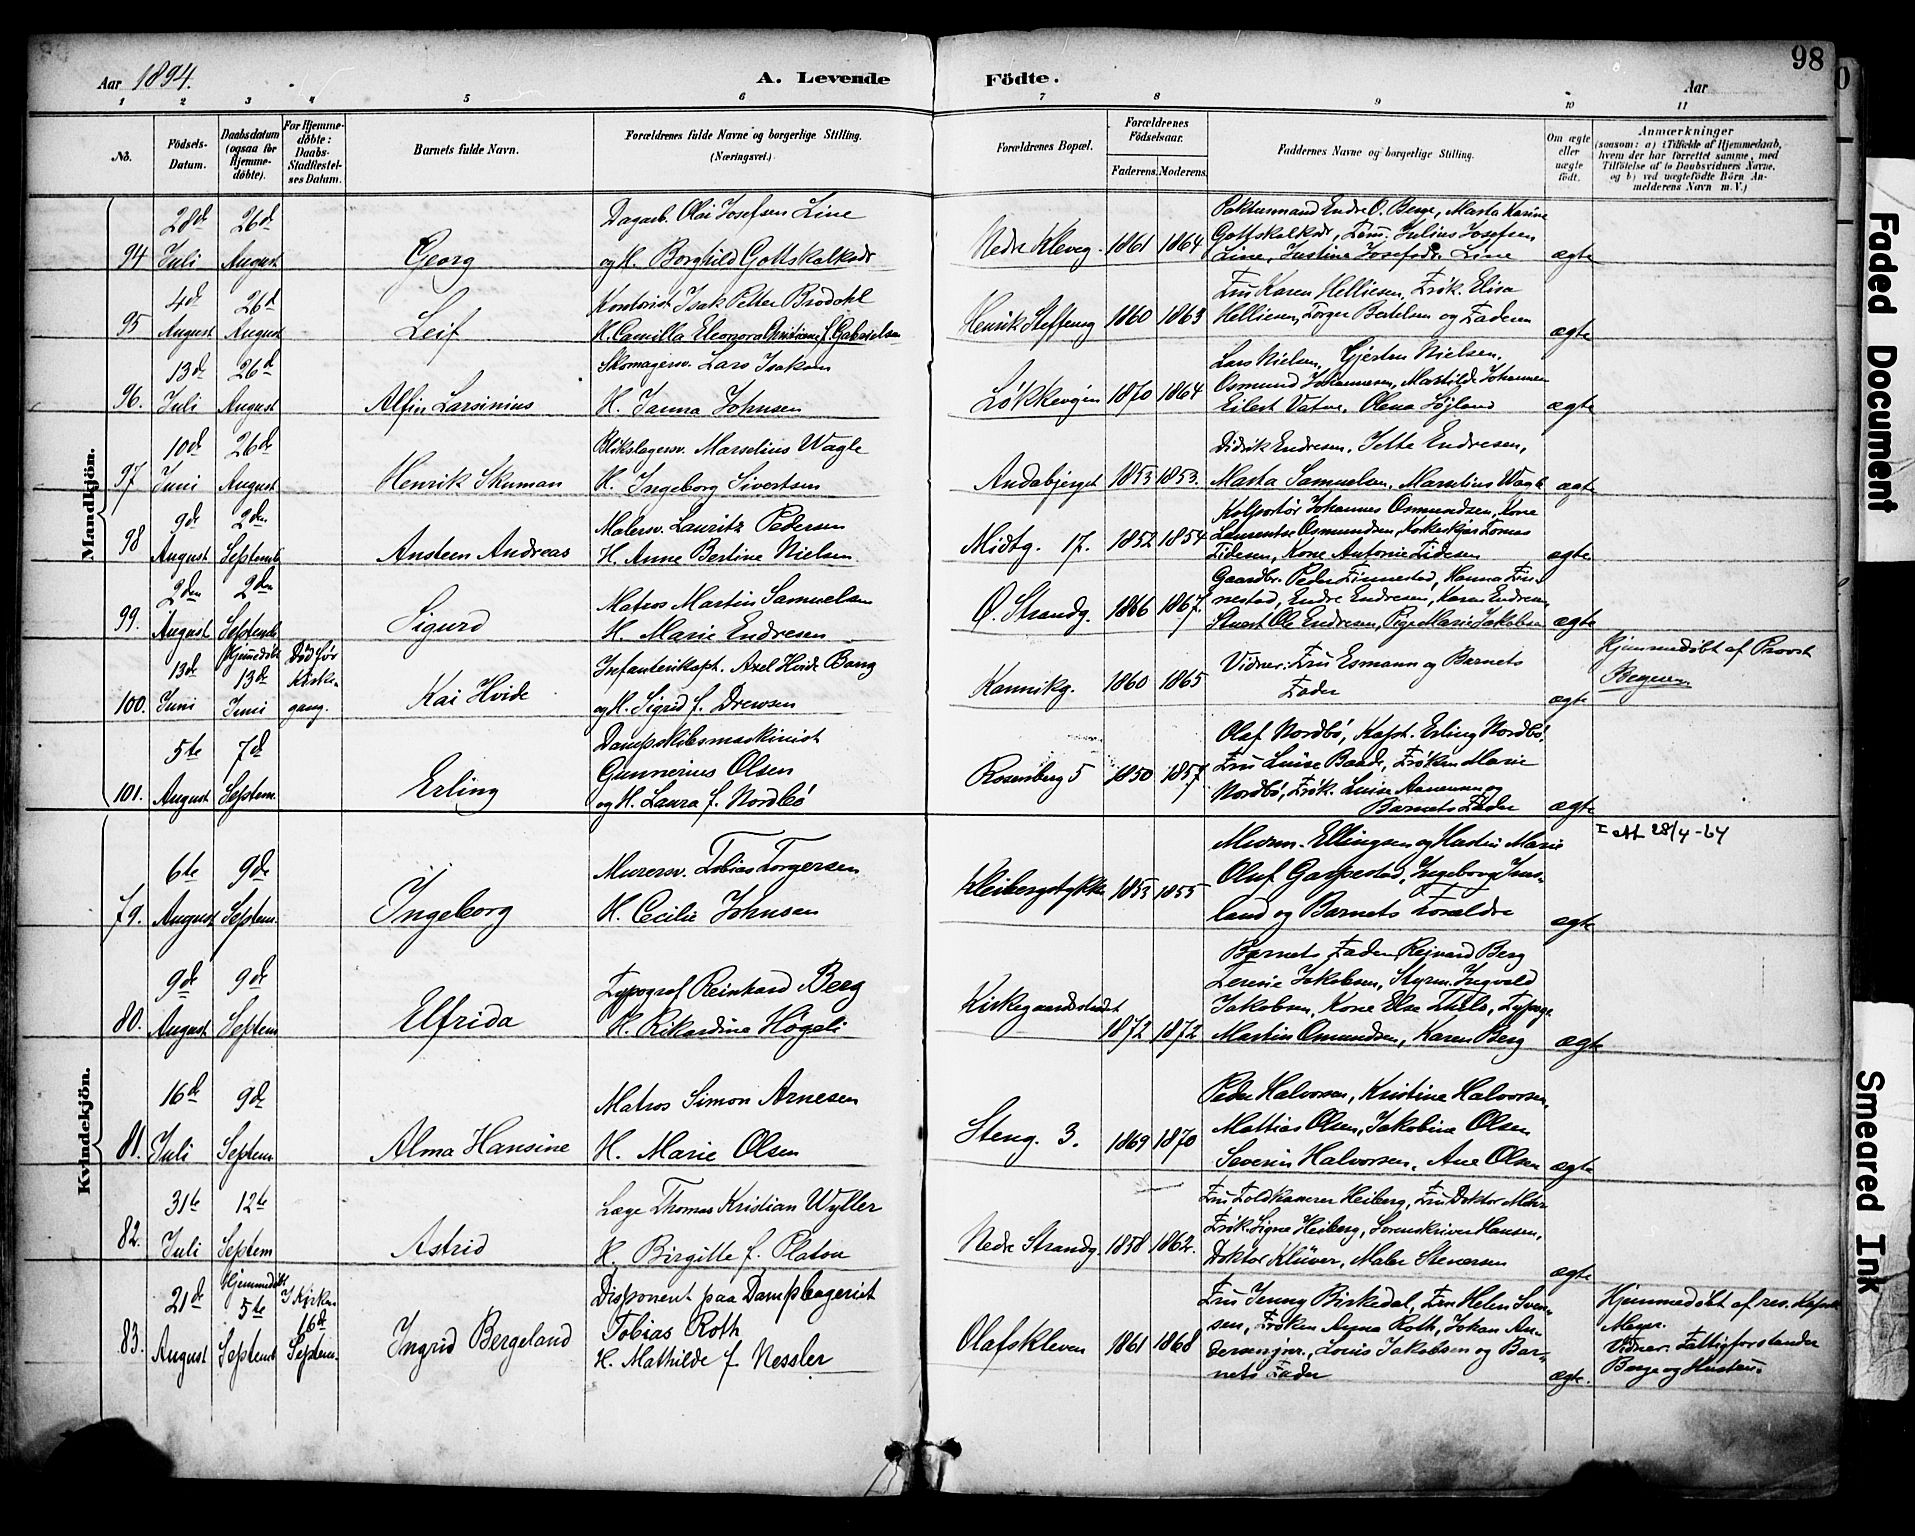 98
Aar 1894. A. Levende Födte. Aar
1 2 3 4 5 6 7 8 9 10 11
No.
Födsels-Datum.
Daabsdatum (ogsaa for Hjemme-döbte).
For Hjemme-döbte: Daabs-Stadfæstel-ses Datum.
Barnets fulde Navn.
Forældrenes fulde Navne og borgerlige Stilling. (Næringsvei.)
Forældrenes Bopæl.
Forældrenes Födselsaar.
Faderens. Moderens.
Faddernes Navne og borgerlige Stilling.
Om ægte eller uægte födt.
Anmærkninger
(saasom: a) i Tilfælde af Hjemmedaab,
hvem der har forrettet samme, med
Tilföielse af to Daabsvidners Navne,
og b) ved uægtefödte Börn An-
melderens Navn m. V.)
Mandkjön.
94 28de Juli 26de August Georg
Dagarb. Olai Josefsen Line
og H. Borghild Gottskalksdr
Nedre Kleveg. 1861 1864
Paktusmand Endre O. Berge, Marta Karine
Gottskalksdr, Tjen. Julius Josefsen
Line, Justine Josefsdr Line ægte
95 4de August 26de August Leif
Kontorist Isak Petter Brodahl
H. Camilla Eleonora Christiane f. Gabrielsen
Henrik Steffensg 1860 1863
Fru Karen Helliesen, Frøk. Elisa
Helliesen, Torger Bertelsen og Faderen ægte
96. 13de Juli 26de August Alfin Larsinius
Skomagersv. Lars Isaksen
H. Janna Johnsen
Løkkevejen 1870 1864
Lars Nielsen, Gjerten Nielsen,
Osmund Johannesen, Mathilde Johannesen
Eilert Vatne, Olena Højland ægte
97 10de Juni 26de August Henrik Skuman
Blikslagersv. Marselius Wagle
H. Ingeborg Sivertsen
Andabjerget 1853 1853.
Didrik Endresen, Jette Endresen,
Marta Samuelsen, Marselius Wagle ægte
98 9de August 2den Septemb Ansteen Andreas
Malersv. Lauritz Pedersen
H. Anne Bertine Nielsen
Midtg. 17. 1852 1854
Kolportør Johannes Osmundsen, Kone
Laurentse Osmundsen, Kirkeskjær Tornes
Tidesen, Kone Antonie Tidesen ægte
99. 2den August 2den Septemb Sigurd
Matros Martin Samuelsen
H. Marie Endresen
Ø. Strandg. 1866 1867.
Gaardbr. Peder Finnestad, Hanna Fin-
nestad, Endre Endresen, Karen Endresen
Stuert Ole Endresen, Pige Marie Jakobsen ægte
100. 13de Juni Hjemmedøbt 13de Juni Død før Kirke-gang. Kai Hvide
Infanterikapt. Axel Hvide Bang
og H. Sigrid f. Drewsen
Kannikg. 1860 1865
Vidner: Fru Esmann og Barnets
Fader ægte
Hjemmedøbt af Provst
101. 5te August 7de Septem. Erling
Dampskibsmaskinist
Gunnerius Olsen
og H. Laura f. Nordbö
Rosenberg 5 1850 1857
Olaf Nordbö, Kapt. Erling Nordbö,
Fru Luise Baade, Frøken Marie
Nordbö, Frøk. Luise Aanensen og
Barnets Fader ægte
Kvindekjön.
79. 6te August 9de Septem. Ingeborg
Murersv. Tobias Torgersen
H. Cecilie Johnsen
Kleibergstykke 1853 1855
Murm. Ellingsen og Hustru Marie
Oluf Garpestad, Ingeborg Juus-
land og Barnets Forældre ægte
28/4-64
80. 9de August 9de Septem Elfrida
Typograf Reinhard Berg
H. Rikardine Høgeli
Kirkegaardsstrædet 1872 1872
Barnets Fader, Rejnard Berg
Teresie Jakobsen, Styrm. Ingvald
Jakobsen, Kone Else Thils, Typogr.
Martin Osmundsen, Karen Berg ægte
81. 16de Juli 9de Septem Alma Hansine
Matros Simon Arnesen
H. Marie Olsen
Steng. 3. 1869 1870
Peder Halvorsen, Kristine Halvorsen,
Mattias Olsen, Jakobine Olsen
Severin Halvorsen, Ane Olsen ægte
82. 31te Juli 12te Septem Astrid
Læge Thomas Kristian Wyller
H. Birgitte f. Platou
Nedre Strandg. 1858 1862.
Fru Toldkasserer Heiberg, Fru Doktor
Frøk. Signe Heiberg, Sorenskriver Hansen,
Doktor Klüver, Maler Stenersen ægte
83. 21de August Hjemmedøbt 5te Septemb I Kirken 16de Septem. Ingrid Bergeland
Disponent paa Dampbageriet
Tobias Roth
H. Mathilde f. Nessler
Olafskleven 1861 1868
Fru Jenny Birkedal, Fru Helen Sven-
sen, Frøken Anna Roth, Johan An-
dersen jnr., Louis Jakobsen og Bar-
nets Fader ægte.
Hjemmedøbt af res. Kapel.
Meyer.
Vidner: Fattigforstander
Berge og Hustru.
Faded Document
Smeared Ink